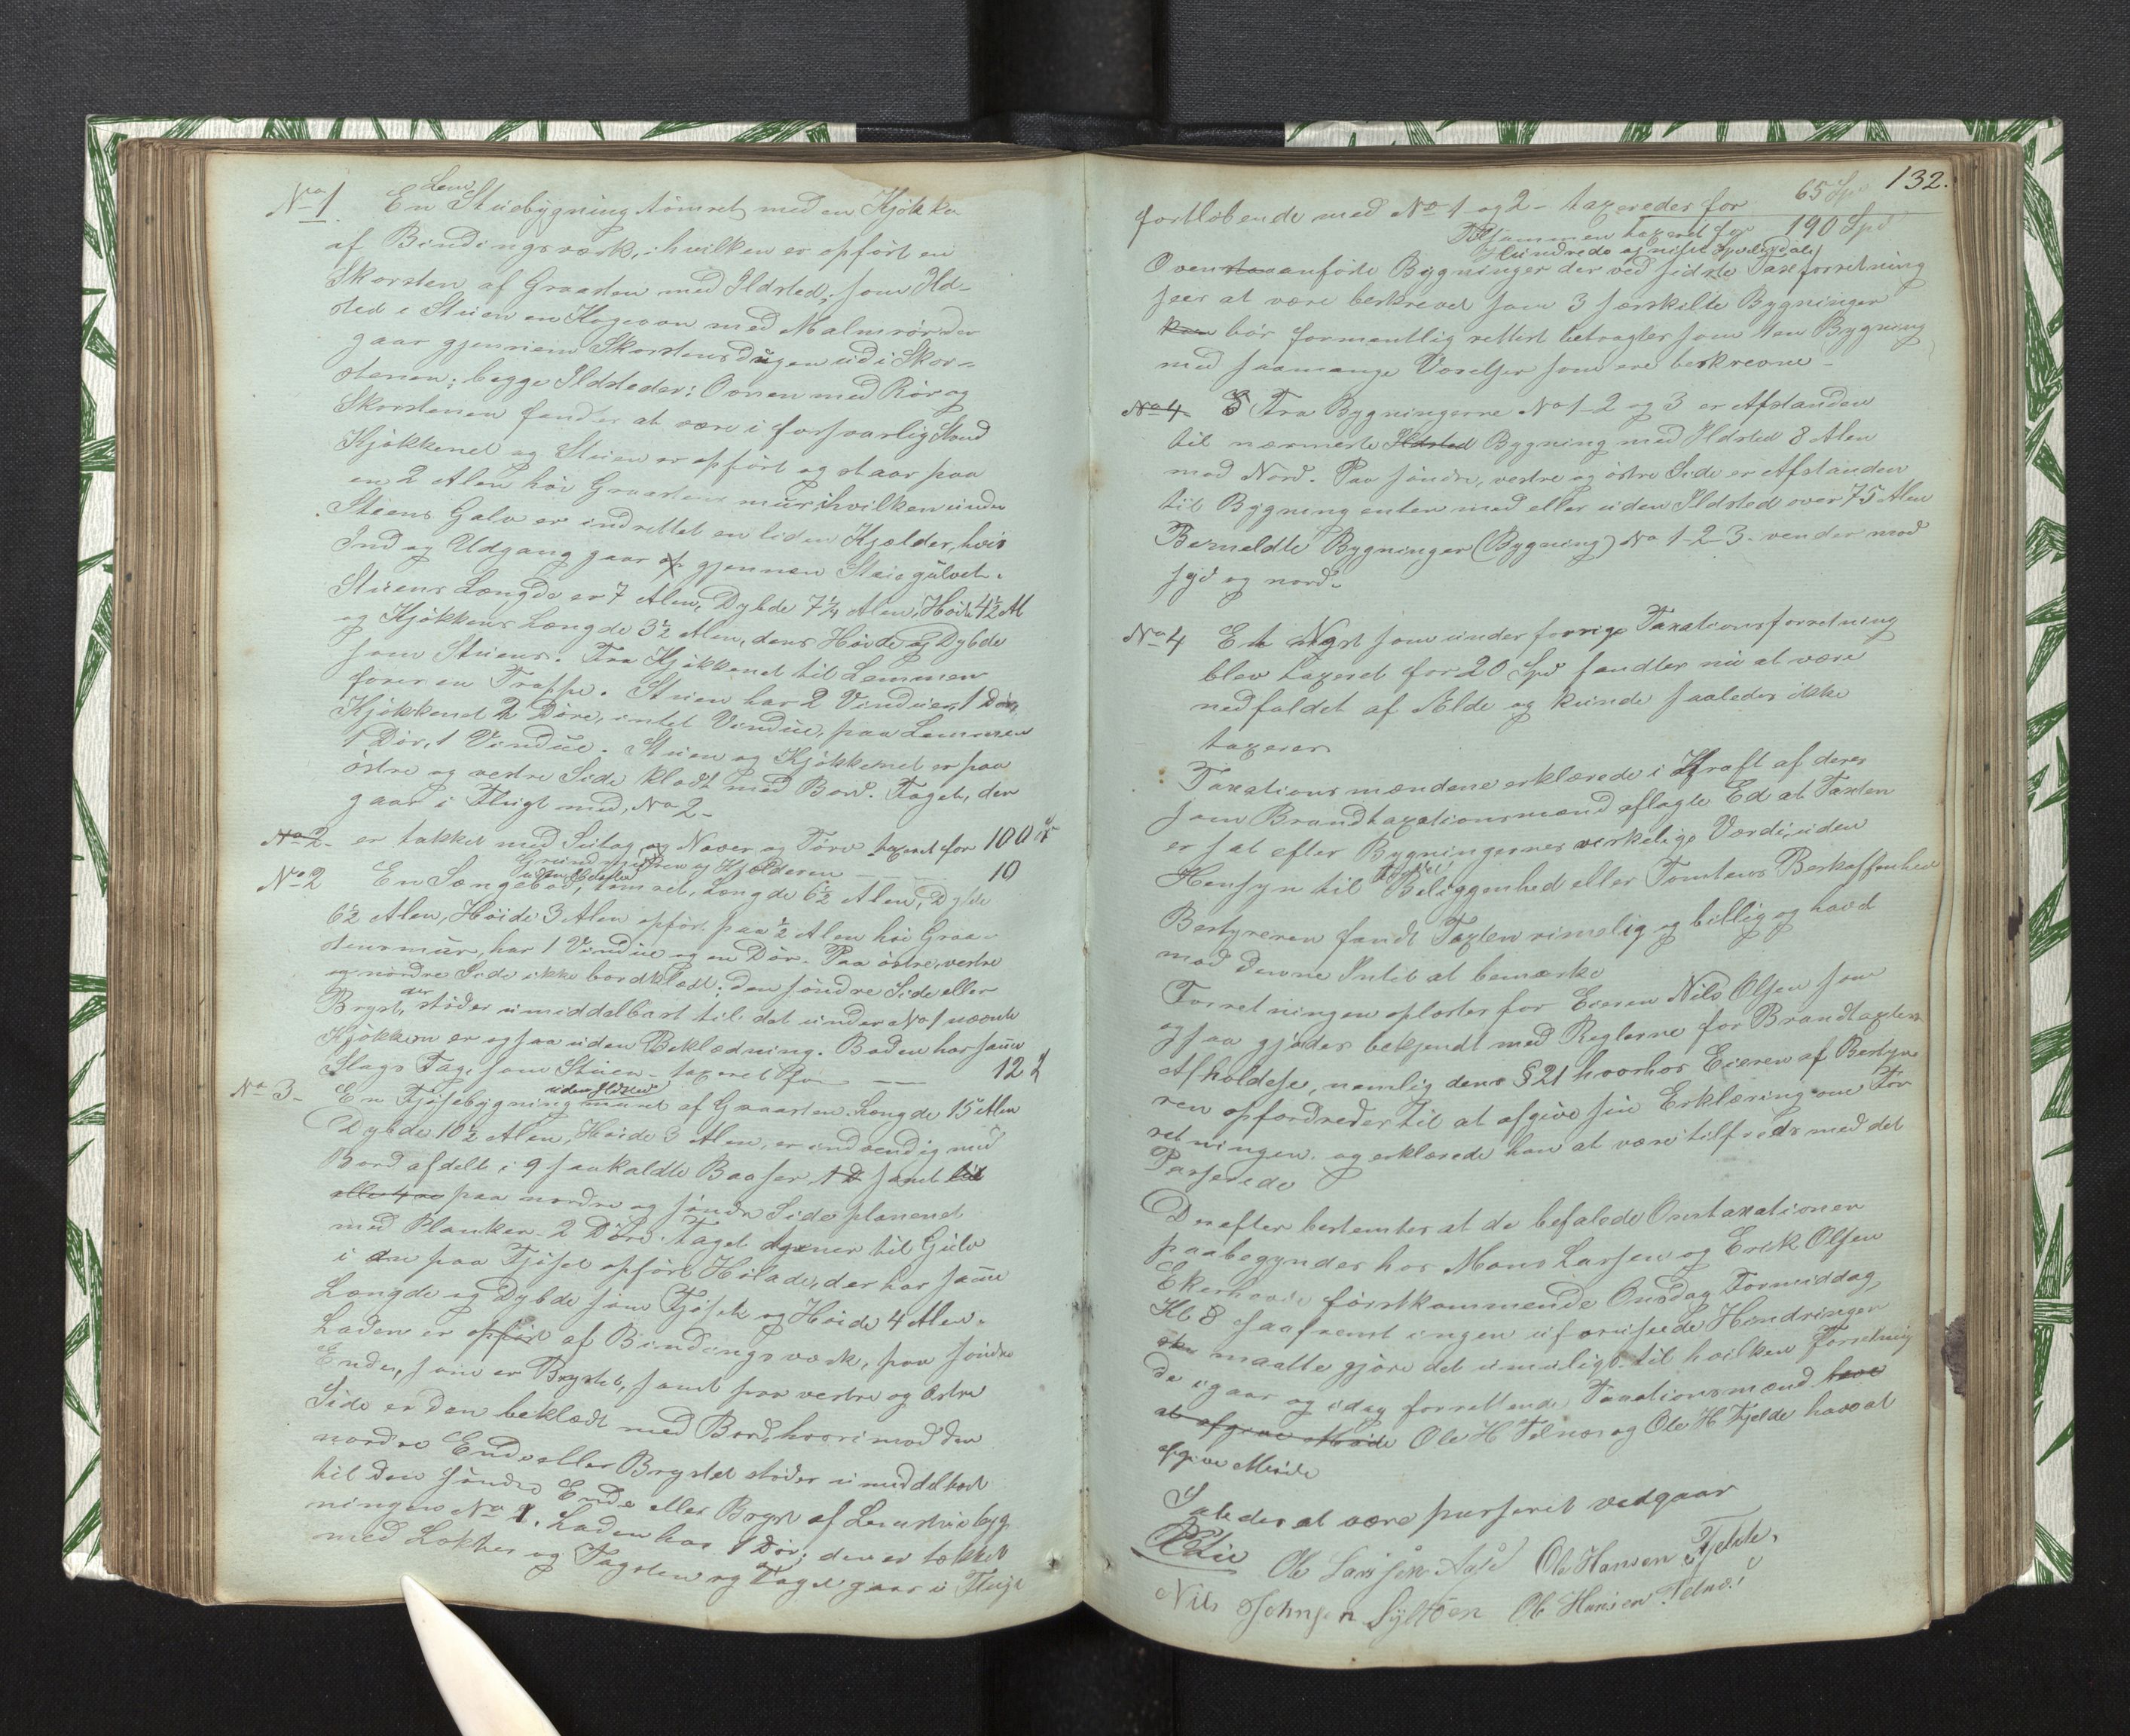 No 1. En Lem Stuebygning tömret med en Kjökken
af Bindingsværk, i hvilken er opført en
Skorsten af Graasten med Ildsted; som Ild-
sted i Stuen en Kogeovn med Malmrör der
gaar gjennem Skorstensdugen ud i Skor-
stenen; begge Ildsteder: Ovnen med Rör og
Skorstenen fandtes at være i forsvarlig Stand
Kjökkenet og Stuen er opfört og staar paa
en 2 Alen höi Graastens muur i hvilken under
Stuens Gulv er indrettet en liden Kjælder, hvis
Ind og Udgang gaar op gjennem Stuegulvet.
Stuens Længde er 7 Alen, Dybde 7 1/4 Alen, Höide 4 1/2 Al
og Kjökkens Længde 3 1/2 Alen, dens Höide og Dybde
som Stuens. Fra Kjökkenet til Lemmen
förer en Trappe. Stuen har 2 Vinduer, 1 Dör,
Kjökkenet 2 Döre, intet Vindue, paa Lemmen
1 Dör, 1 Vindue. Stuen og Kjökkenet er paa
östre og vestre Side klædt med Bord. Taget, der
gaar i Flugt med No 2-
No 2- er tækket med Sutag og Næver og Törv taxeret for 100
Grundmuren og Kjelderen 10
No 2 En Sængebod, uden Ildsted tömret, Længde 6 1/2 Alen, Dybde
6 1/2 Alen, Höide 3 Alen opfört paa 1/2 Alen höi Graa-
stensmuur, har 1 Vindue og en Dör. Paa östre, vestre
og nordre Side ikke bordklædt; den söndre Side eller
Bryst, der stöder umiddelbart til det under No 1 nævnte
Kjökken er ogsaa uden Beklædning. Boden har samme
Slags Tag som Stuen - taxeret for 12
No 3- En Fjösebygning uden Ildsted muret af Graasten. Længde 15 Alen
Dybde 10 1/2 Alen, Höide 3 Alen, er indvendig med
Bord afdelt i 9 saakaldte Baaser, 1 D samt
eller 4 paa nordre og söndre Side planeret
med Planker- 2 Döre. Taget tjener til Gulv
i en paa Fjöset opfört Hölade, der har samme
Længde og Dybde som Fjöset og Höide 4 Alen.
Laden er opfört af Bindingsværk, paa söndre
Ende, som er Brystet, samt paa vestre og östre
Side er den beklædt med Bord, hvorimod den
nordre Ende eller Brystet stöder umiddelbart
til den söndre Ende eller Bryst af Lemstuebyg
ningen No 1. Laden har 1 Dör; den er tækket
med Lækter og Tagsten og Taget gaar i Flugt
132.
fortlöbende med No 1 og 2- taxeredes for 65 Spd
Tilsammen taxeret for 190 Spd
Hundrede og niti Speciedaler
Oven anförte Bygninger der ved sidste Taxtforretning
sees at være beskrevet som 3 særskilte Bygninger
kan bör formentlig rettest betragtes som 1 en Bygning
med saamange Værelser som ere beskrevne -
No 4. Fra Bygningerne No 1-2 og 3 er Afstanden
til nærmeste Ildsted Bygning med Ildsted 8 Alen
mod Nord. Paa söndre, vestre og östre Side er Afstanden
til Bygning enten med eller uden Ildsted over 75 Alen
Bemeldte Bygninger (Bygning) No 1-2-3- vender mod
syd og nord.
No 4 Et Nöst som under forrige Taxationsforretning
blev taxeret for 20 Spd fandtes nu at være
nedfaldet af Ælde og kunde saaledes ikke
taxeres
Taxationsmændene erklærede i Kraft af deres
som Brandtaxationsmænd aflagte Ed at Taxten
er sat efter Bygningernes virkelige Værdi, uden
Hensyn til Beliggenhed eller Tomtens Beskaffenhed
Bestyreren fandt Taxten rimelig og billig og havd
mod denne Intet at bemærke
Forretningen oplæstes for Eieren Nils Olsen som
ogsaa gjordes bekjendt med Reglerne for Brandtaxters
Afholdelse, nemlig dens § 21 hvorhos Eieren af Besty-
reren opfordredes til at afgive sin Erklæring om For
retningen, og erklærede han at være tilfreds med det
Passerede
Derefter bestemtes at de befalede Omtaxationer
paabegyndes hos Mons Larsen og Erik Olsen
Ekerhovde förstkommende Onsdag Formiddag
Kl 8 saafremt ingen uforudseede Hindringer
maatte gjöre det umuligt. til hvilken Forretning
de igaar og idag forrettende Taxationsmænd have
at afgive Möde Ole H Telnes og Ole H Fjelde have at
afgive Möde
Saaledes at være passeret vedgaar
Ole Larssen Ole Hansen Fjelde.
Nils Johnsen Syltöen Ole Hansen Telnes